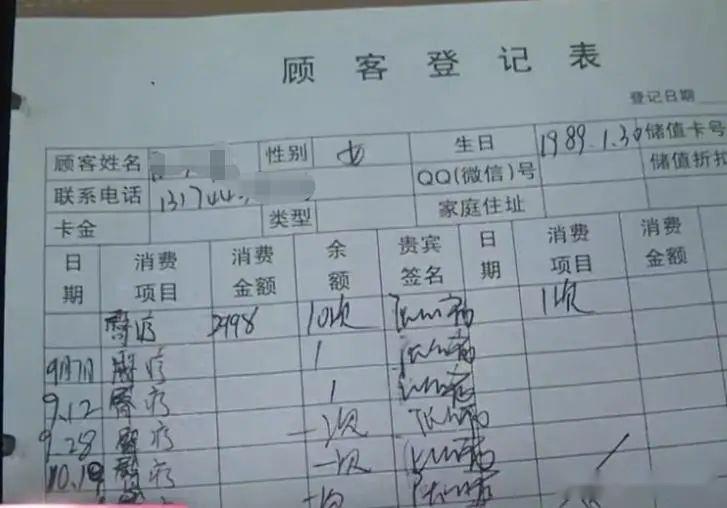 顾客登记表
登记日期
顾客姓名 性别 女 生日 1989.1.30 储值卡号
联系电话 131744 QQ(微信)号 储值折扣
卡金 类型 家庭住址
日期 消费项目 消费金额 余额 贵宾签名 日期 消费项目 消费金额
臀疗 2998 10次 1次
9月7日 臀疗 1
9.12 臀疗 1
9.28 臀疗 一次
10.19 臀疗 一次
疗 一次